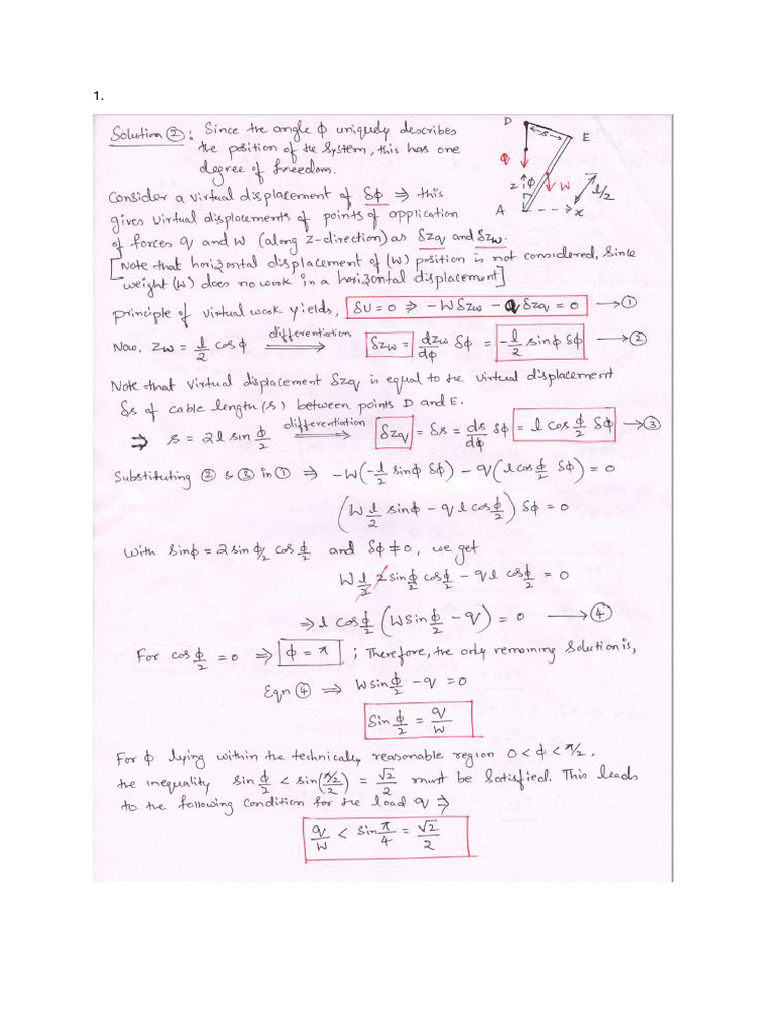 1.
Solution ②: Since the angle φ uniquely describes
the position of the system, this has one
degree of freedom.
D
s
E
q
z
φ
W
l/2
A
x
Consider a virtual displacement of δφ ⇒ this
gives virtual displacements of points of application
of forces q and W (along z-direction) as δzq and δzw.
[Note that horizontal displacement of (W) position is not considered, since
weight (W) does no work in a horizontal displacement]
principle of virtual work yields, δU = 0 ⇒ -W δzw - q δzq = 0 → ①
Now, zw = l/2 cos φ differentiation ⟹ δzw = dzw/dφ δφ = -l/2 sin φ δφ → ②
Note that virtual displacement δzq is equal to the virtual displacement
δs of cable length (s) between points D and E.
⇒ s = 2l sin φ/2 differentiation ⟹ δzq = δs = ds/dφ δφ = l cos φ/2 δφ → ③
Substituting ② & ③ in ① ⇒ -W(-l/2 sin φ δφ) - q(l cos φ/2 δφ) = 0
(W l/2 sin φ - q l cos φ/2) δφ = 0
With sin φ = 2 sin φ/2 cos φ/2 and δφ ≠ 0, we get
W l/2 2 sin φ/2 cos φ/2 - q l cos φ/2 = 0
⇒ l cos φ/2 (W sin φ/2 - q) = 0 → ④
For cos φ/2 = 0 ⇒ φ = π ; Therefore, the only remaining solution is,
Eqn ④ ⇒ W sin φ/2 - q = 0
Sin φ/2 = q/W
For φ lying within the technically reasonable region 0 < φ < π/2,
the inequality sin φ/2 < sin(π/2/2) = √2/2 must be satisfied. This leads
to the following condition for the load q ⇒
q/W < sin π/4 = √2/2